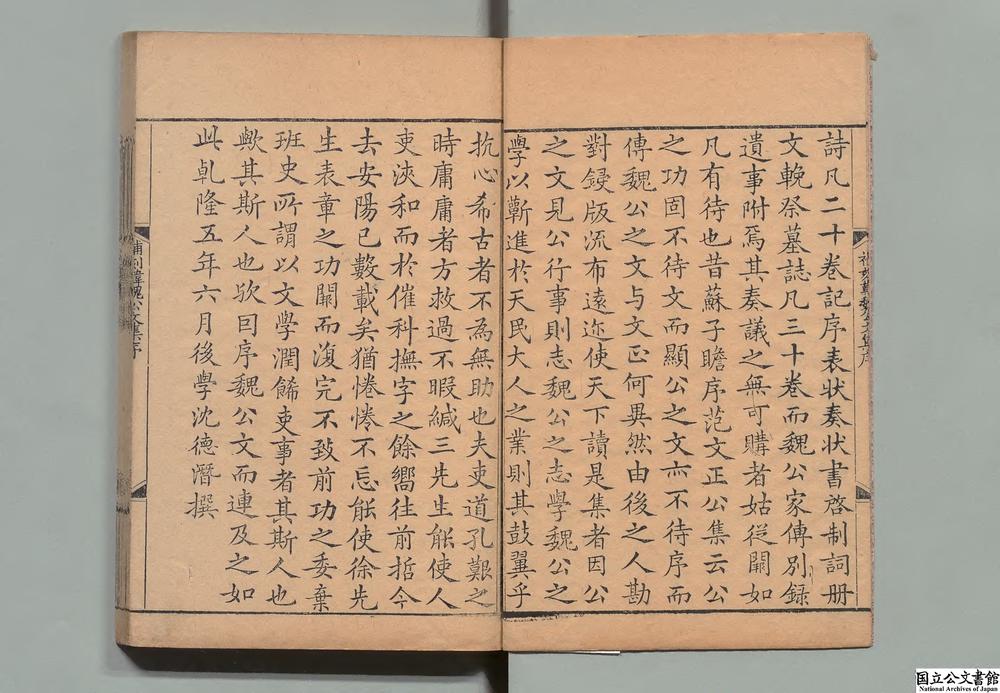 詩凡二十卷記序表狀奏狀書啓制詞冊
文輓祭墓誌凡三十卷而魏公家傳別錄
遺事附焉其奏議之無可購者姑從闕如
凡有待也昔蘇子瞻序范文正公集云公
之功固不待文而顯公之文亦不待序而
傳魏公之文与文正何異然由後之人勘
對鋟版流布遠迩使天下讀是集者因公
之文見公行事則志魏公之志學魏公之
學以蘄進於天民大人之業則其鼓翼乎
抗心希古者不為無助也夫吏道孔艱之
時庸庸者方救過不暇緘三先生能使人
吏浹和而於催科撫字之餘嚮往前哲今
去安陽已數載矣猶惓惓不忘能使徐先
生表章之功闕而復完不致前功之委棄
班史所謂以文學潤餙吏事者其斯人也
歟其斯人也欤回序魏公文而連及之如
此乹隆五年六月後學沈德潛撰
補刻韓魏公文集序
国立公文書館
National Archives of Japan